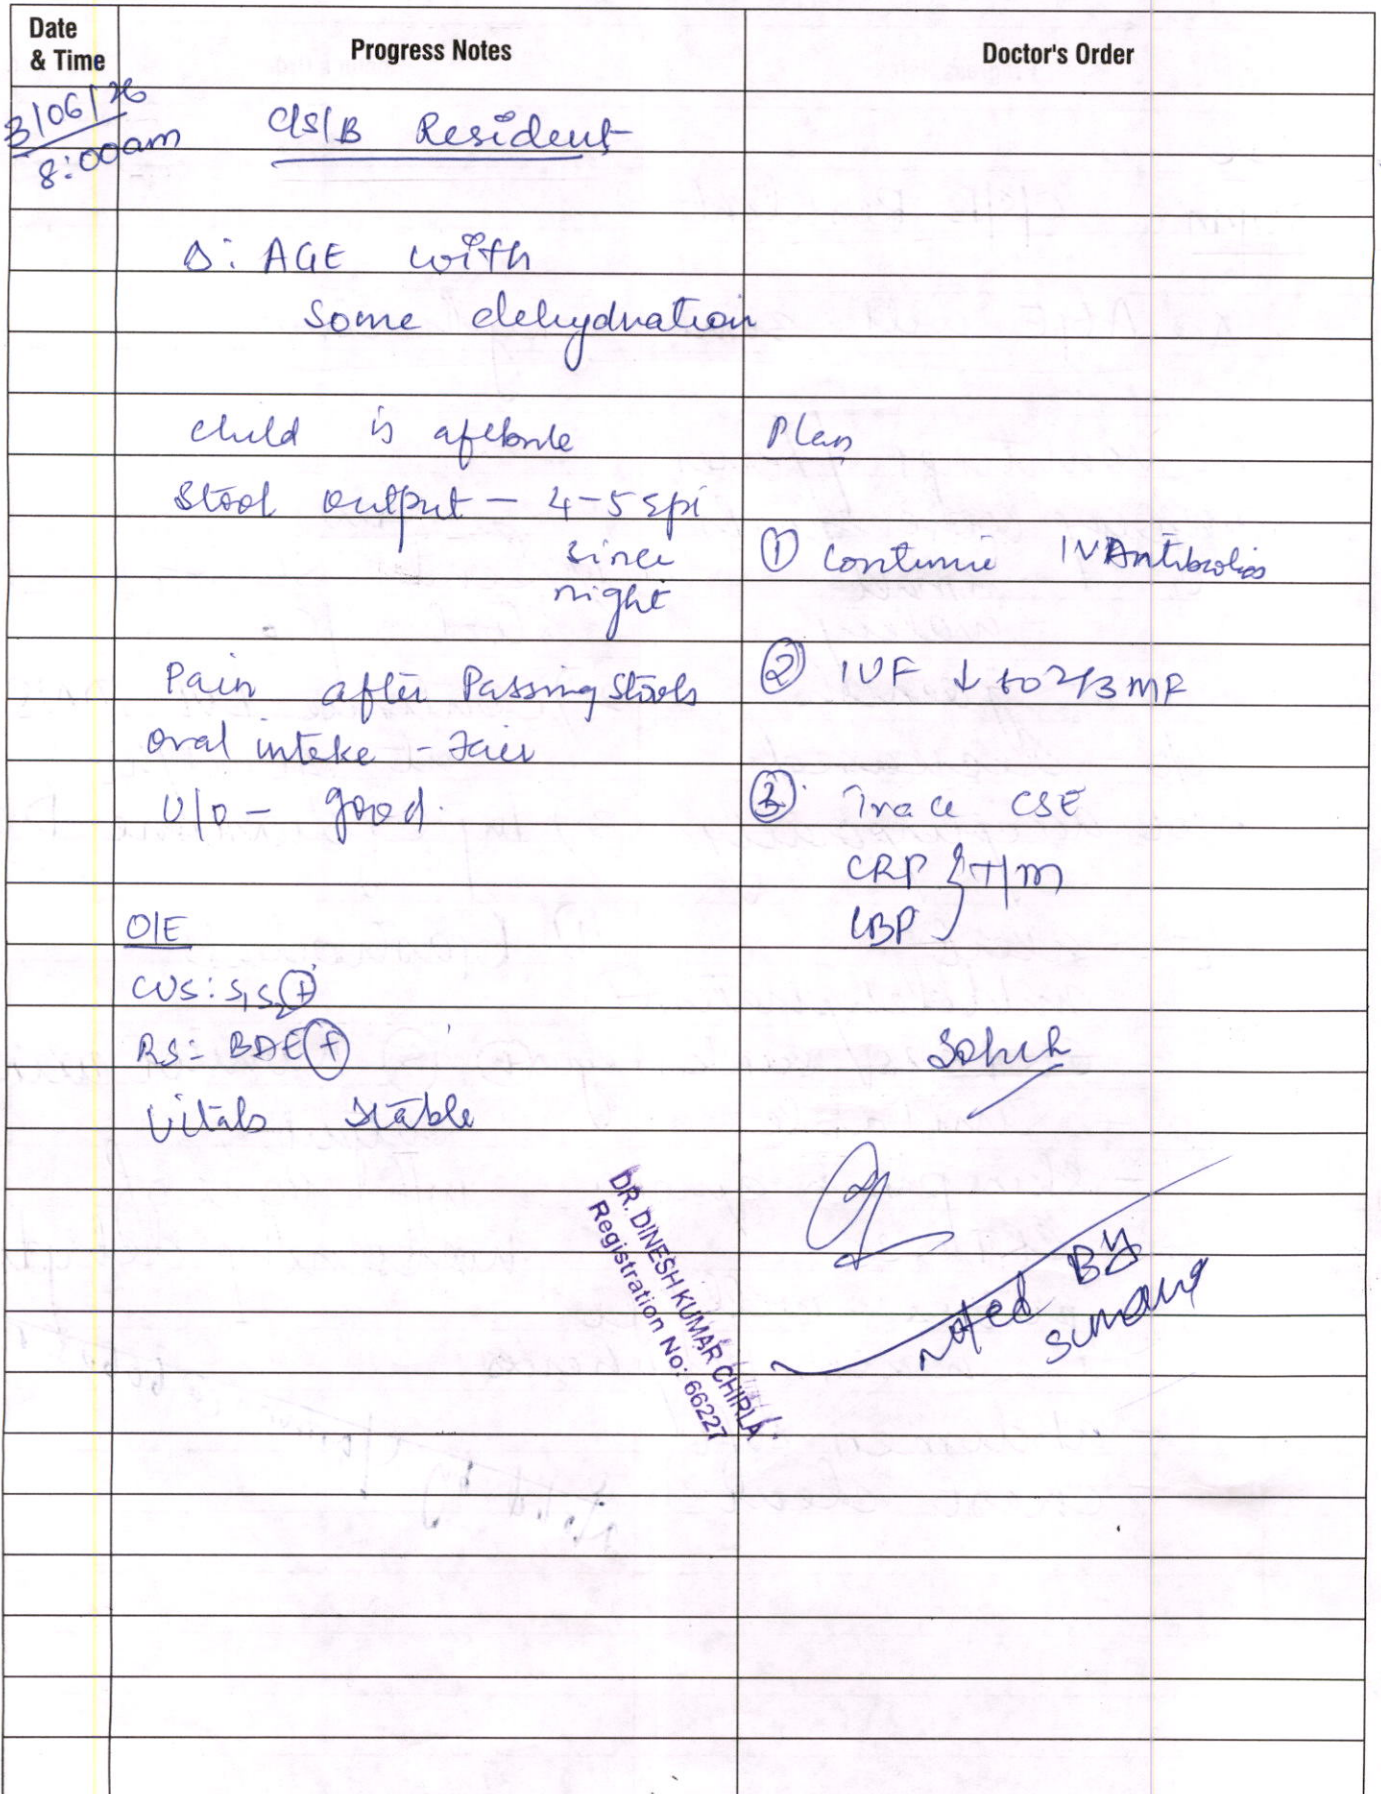 Date & Time
Progress Notes
Doctor's Order
3/06/26
8:00am
C/S/B Resident
Δ: AGE with
Some dehydration
child is afebrile
Stool output - 4-5 epi
since
night
Pain after Passing Stools
oral intake - Fair
U/O - good.
O/E
CVS: S1S2 (+)
RS: BAE (+)
Vitals stable
Plan
① Continue IV Antibiotics
② IVF ↓ to 2/3 MF
③ Trace CSE
CRP } T/m
CBP
Noted By
DR. DINESH KUMAR CHIRLA
Registration No: 66227